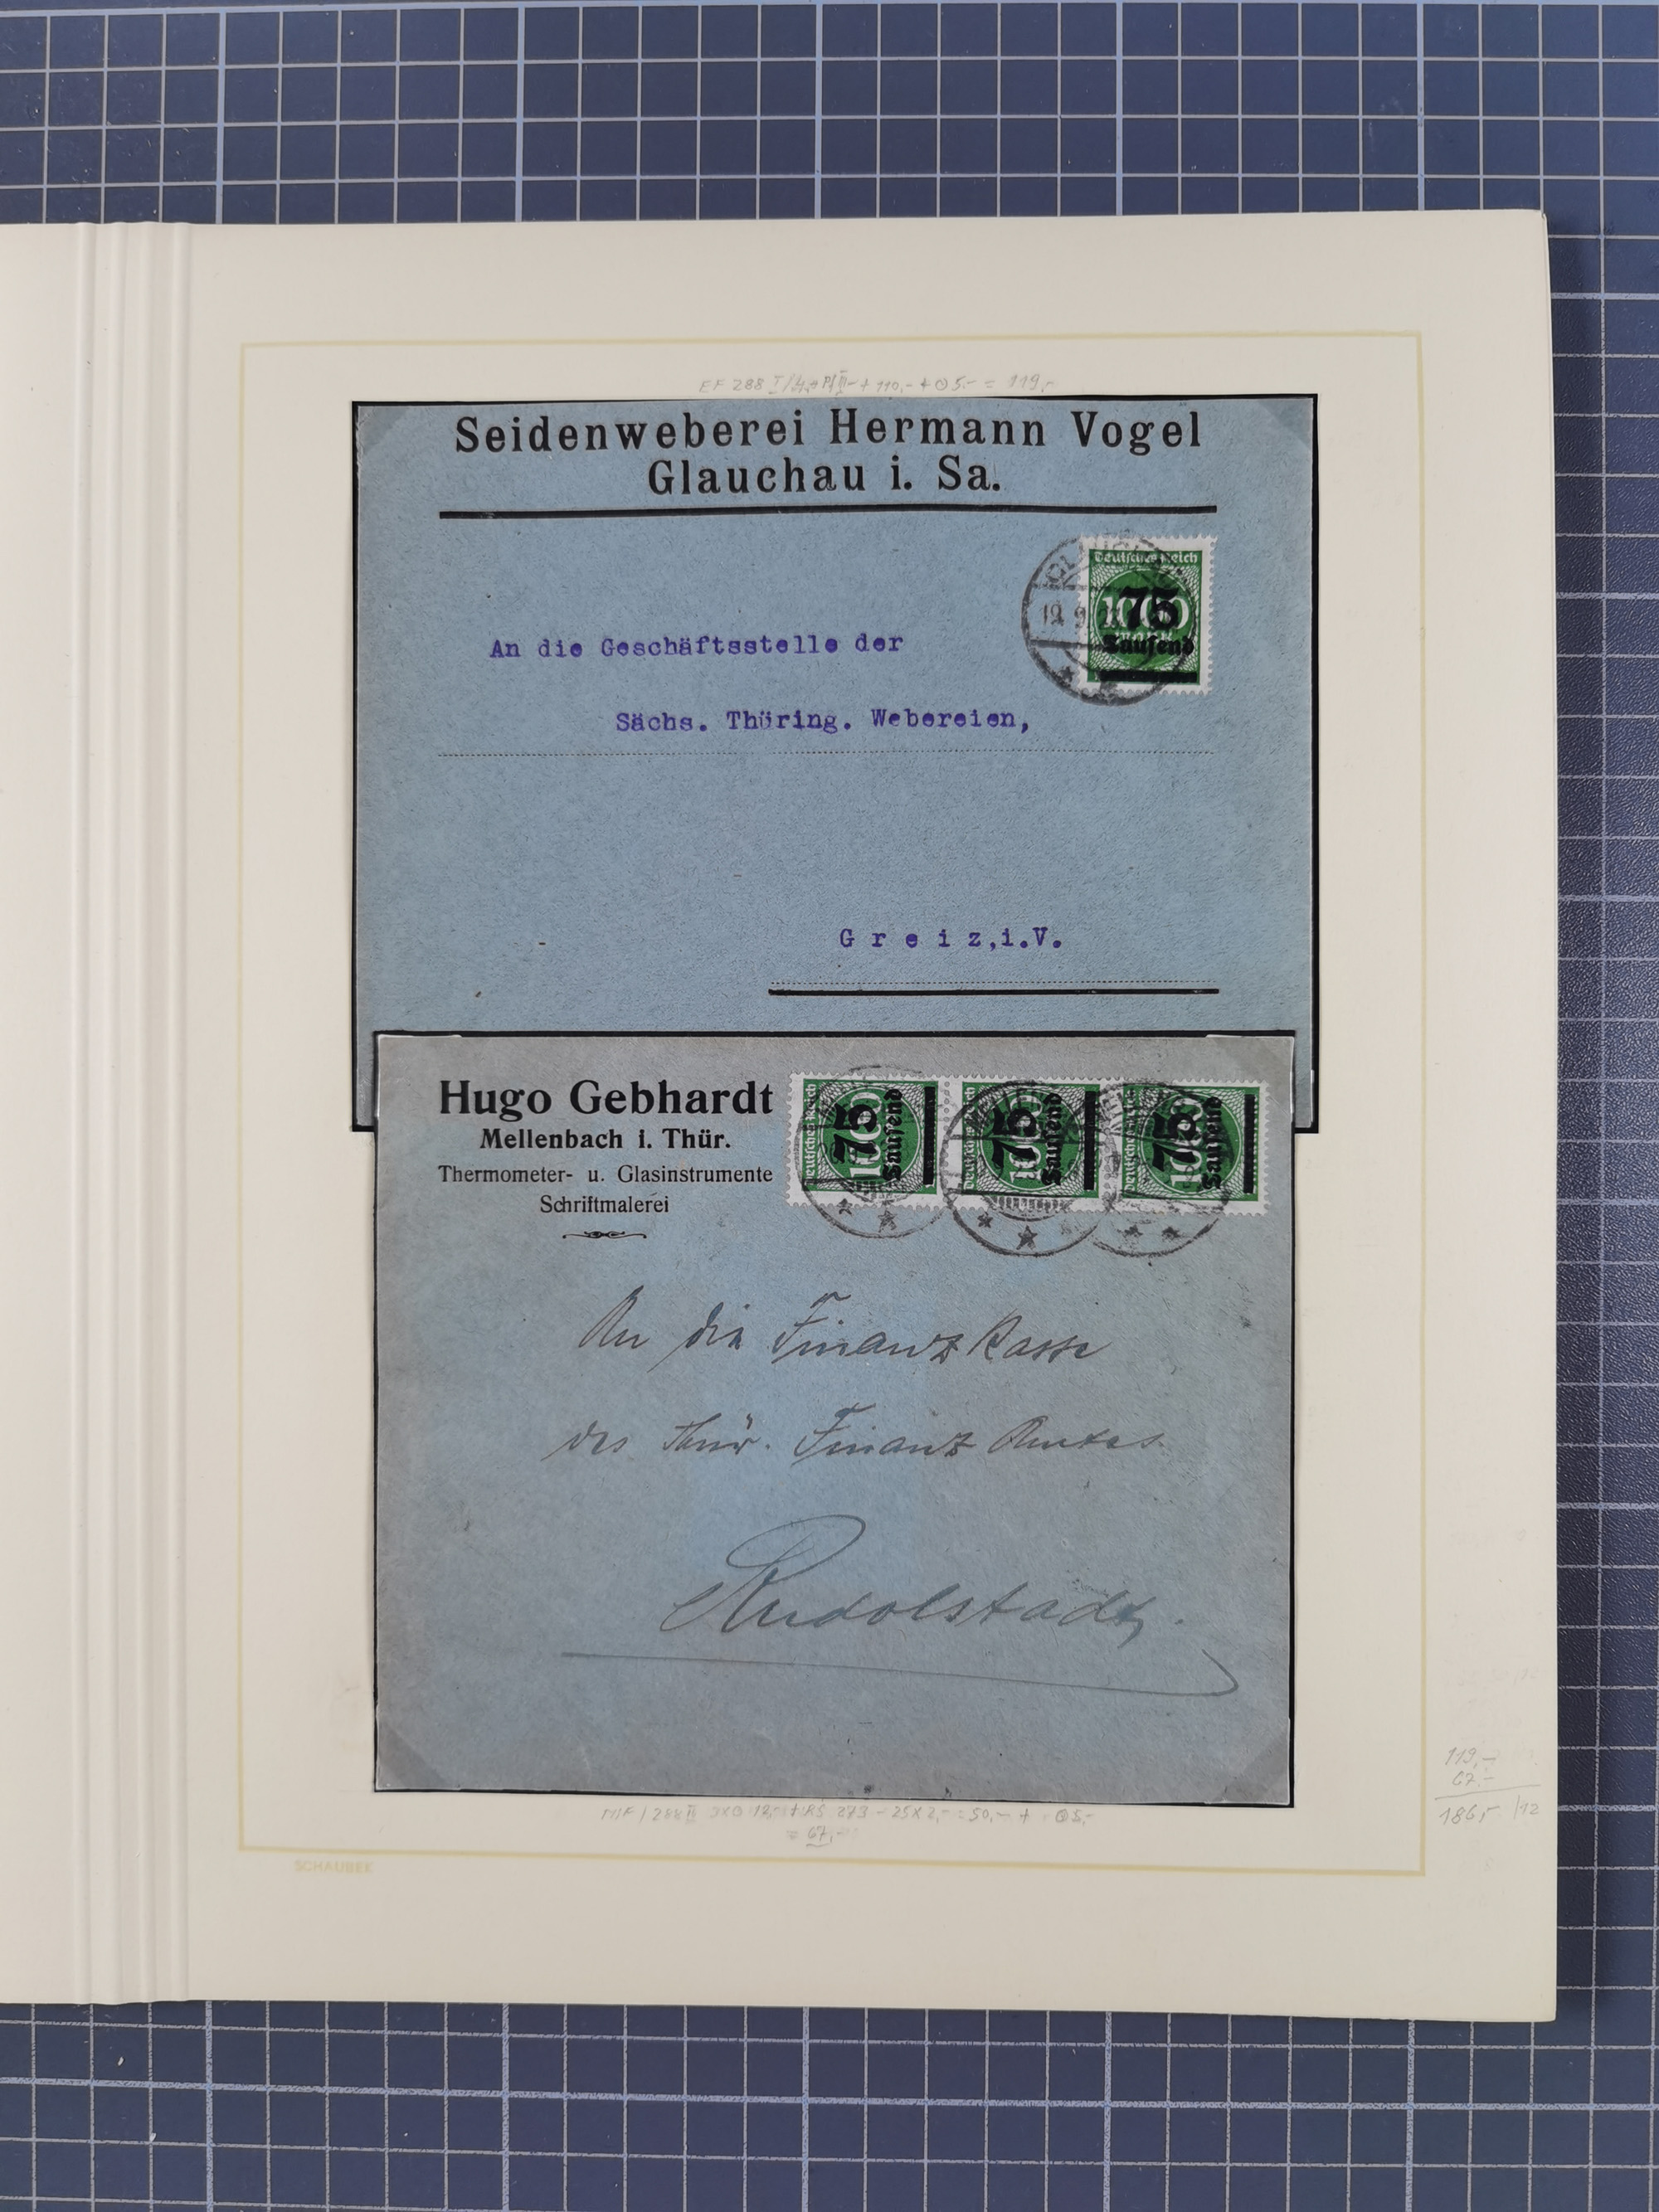 EF 288 I
+ 110,- + ⊙ 5.- = 119,-
Seidenweberei Hermann Vogel
Glauchau i. Sa.
Deutsches Reich
1000
75
Tausend
19. 9.
An die Geschäftsstelle der
Sächs. Thüring. Webereien,
G r e i z , i.V.
Hugo Gebhardt
Mellenbach i. Thür.
Thermometer- u. Glasinstrumente
Schriftmalerei
Deutsches Reich 1000 75 Tausend
Deutsches Reich 1000 75 Tausend
Deutsches Reich 1000 75 Tausend
An die Finanzkasse
des Thür. Finanz Amtes
Rudolstadt.
MIF / 288 II
273 - 25 X 2,- = 50,- +
= 67,-
119,-
67,-
186,-
/12
SCHAUBEK